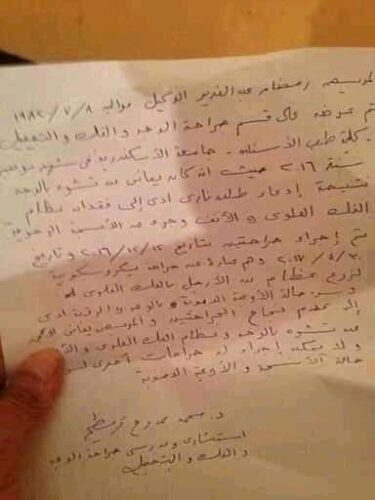 المريض رمضان عبد القدير الوكيل مواليد ٨/٧/١٩٨٢
تم عرضه على قسم جراحة الوجه والفك والتجميل
بكلية طب الأسنان - جامعة الأسكندرية فى شهر
سنة ٢٠١٦ حيث انه كان يعانى من تشوه بالوجه
نتيجة إدعاء طلق نارى ادى إلى فقدان عظام
الفك العلوى و الأنف وجزء من الأنسجة الرخوة
تم إجراء جراحتين بتاريخ ١٢/١٢/٢٠١٦ وتاريخ
وهم عبارة عن جراحة ميكروسكوبية
لزرع عظام من الأرجل بالفك العلوى
حالة الأوعية الدموية بالوجه و الرقبة ادى
إلى عدم نجاح الجراحتين و المريض يعانى
من تشوه بالوجه وعظام الفك العلوى و
ولا يمكن إجراء له جراحات أخرى
حالة الأنسجة و الأوعية الدموية
د. محمد ممدوح
استشارى ومدرس جراحة الوجه
و الفك و التجميل